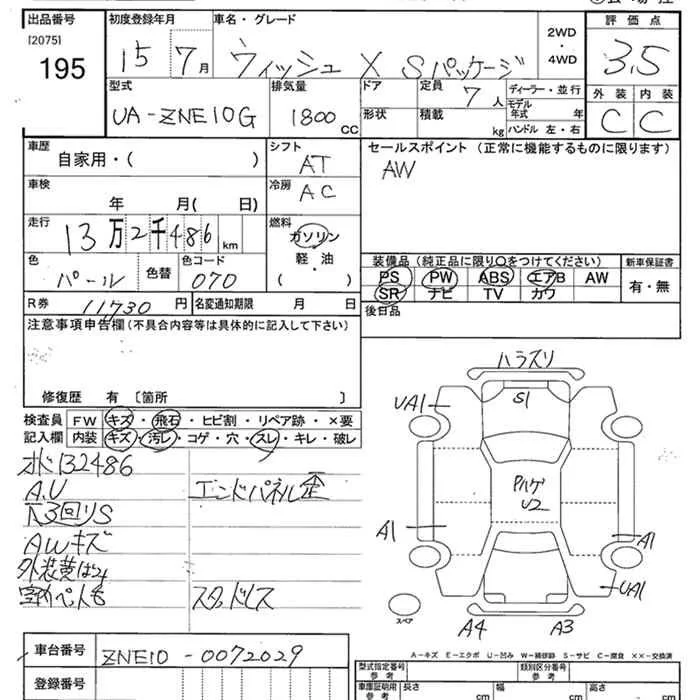 出品番号 初度登録年月 車名・グレード 評価点
[2075] 195
15 7月 ウィッシュ X Sパッケージ 2WD・4WD 3.5
型式 排気量 ドア 定員 7人 ディーラー・並行 外装 内装
UA-ZNE10G 1800CC 形状 積載 kg モデル年式 年 C C
ハンドル 左・右
車歴 シフト セールスポイント (正常に機能するものに限ります)
自家用・( ) AT AW
車検 冷房
年 月( 日) AC
走行 燃料
13万2千486km ガソリン
軽・油
( )
装備品(純正品に限り○をつけてください) 新車保証書
色 色替 色コード
パール 070
PS PW ABS エアB AW 有・無
SR ナビ TV カワ
R券 11730円 名変通知期限 月 日 後日品
注意事項申告欄(不具合内容等は具体的に記入して下さい)
修復歴 有 [箇所 ]
検査員 FW キズ・飛石・ヒビ割・リペア跡・×要
記入欄 内装 キズ・汚レ・コゲ・穴・スレ・キレ・破レ
132486
A.U エンドパネル歪
下3回りS
AWキズ
外装
スタッドレス
ハラズリ
S1
UA1
Pルーゲ
U2
A1
A1
UA1
スペア
A4 A3
A-キズ E-エクボ U-凹み W-補修跡 S-サビ C-腐食 XX-交換済
車台番号 ZNE10-0072029
登録番号
型式指定番号 参考 類別区分番号 参考
車庫証明用 参考 長さ cm 幅 cm 高さ cm